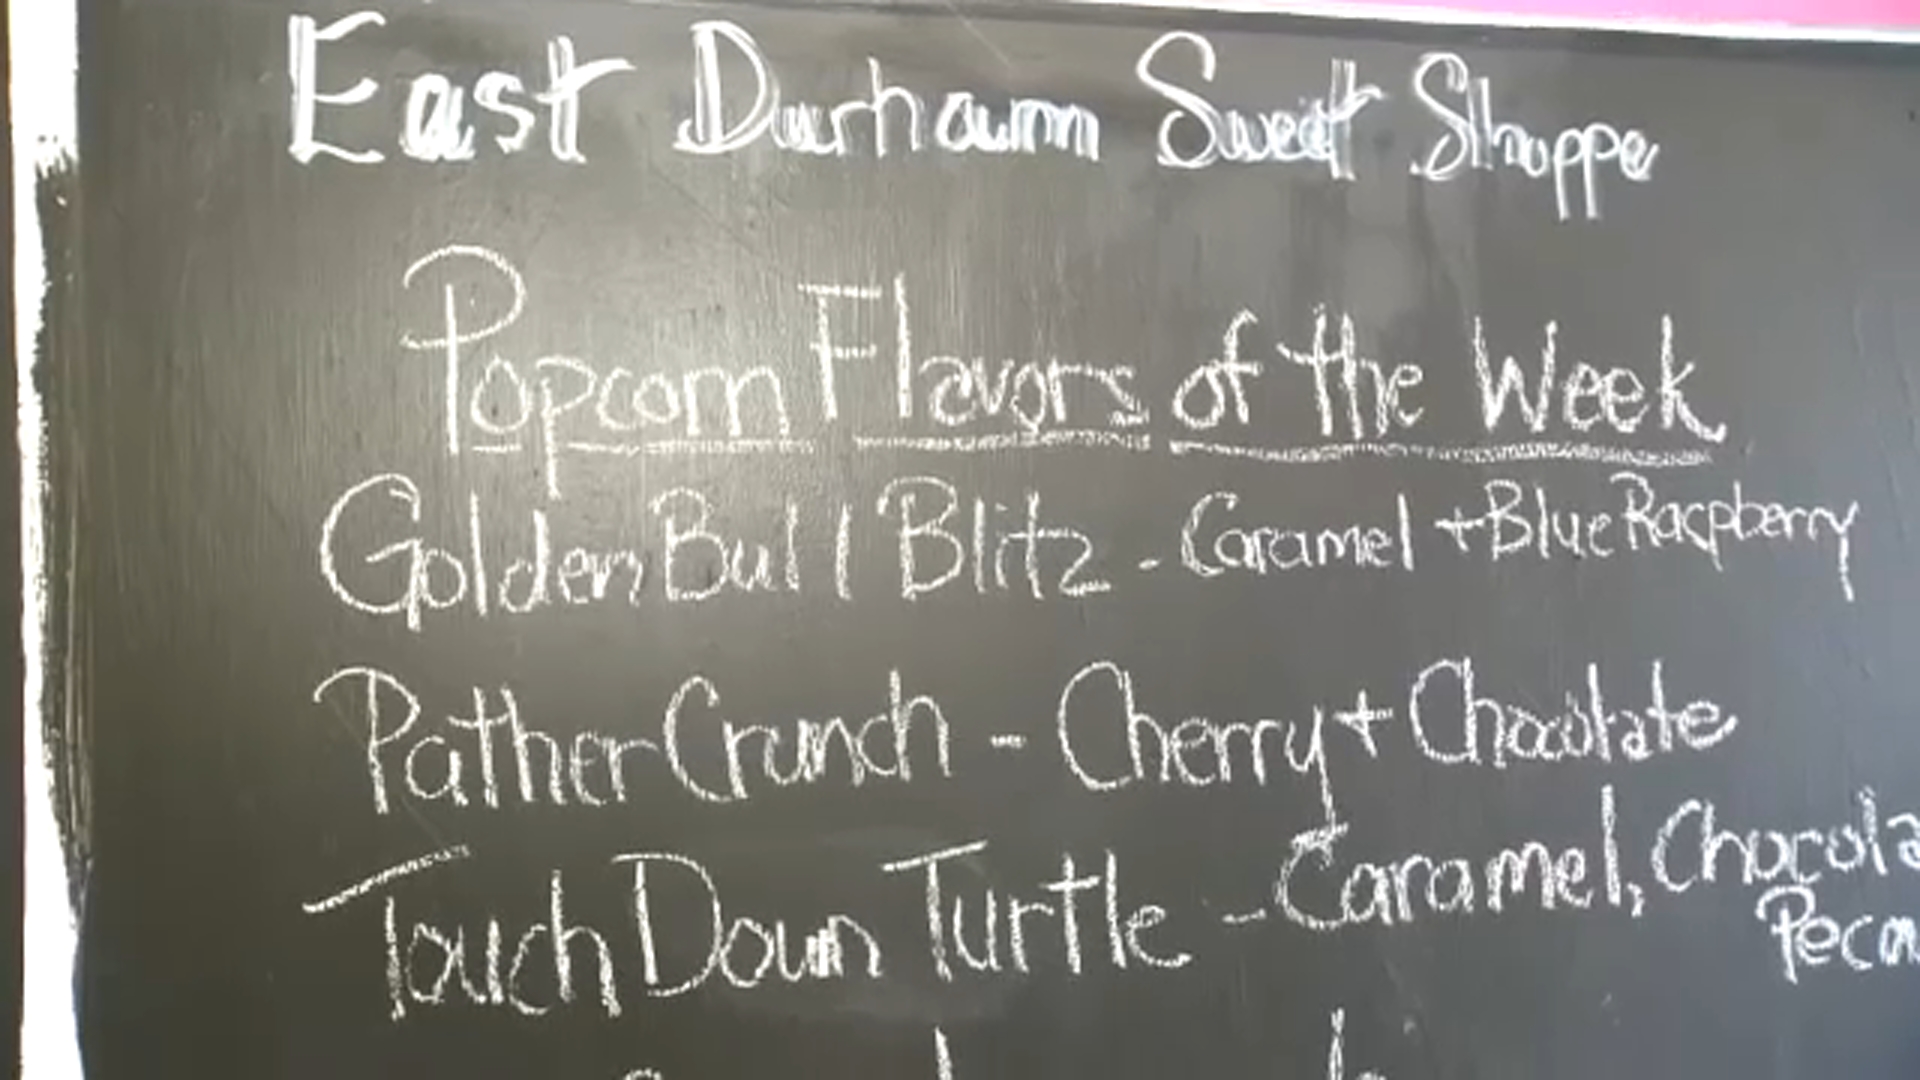 East Durham Sweet Shoppe
Popcorn Flavors of the Week
Golden Bull Blitz - Caramel + Blue Raspberry
Pather Crunch - Cherry + Chocolate
Touch Down Turtle - Caramel, Chocola
Peca